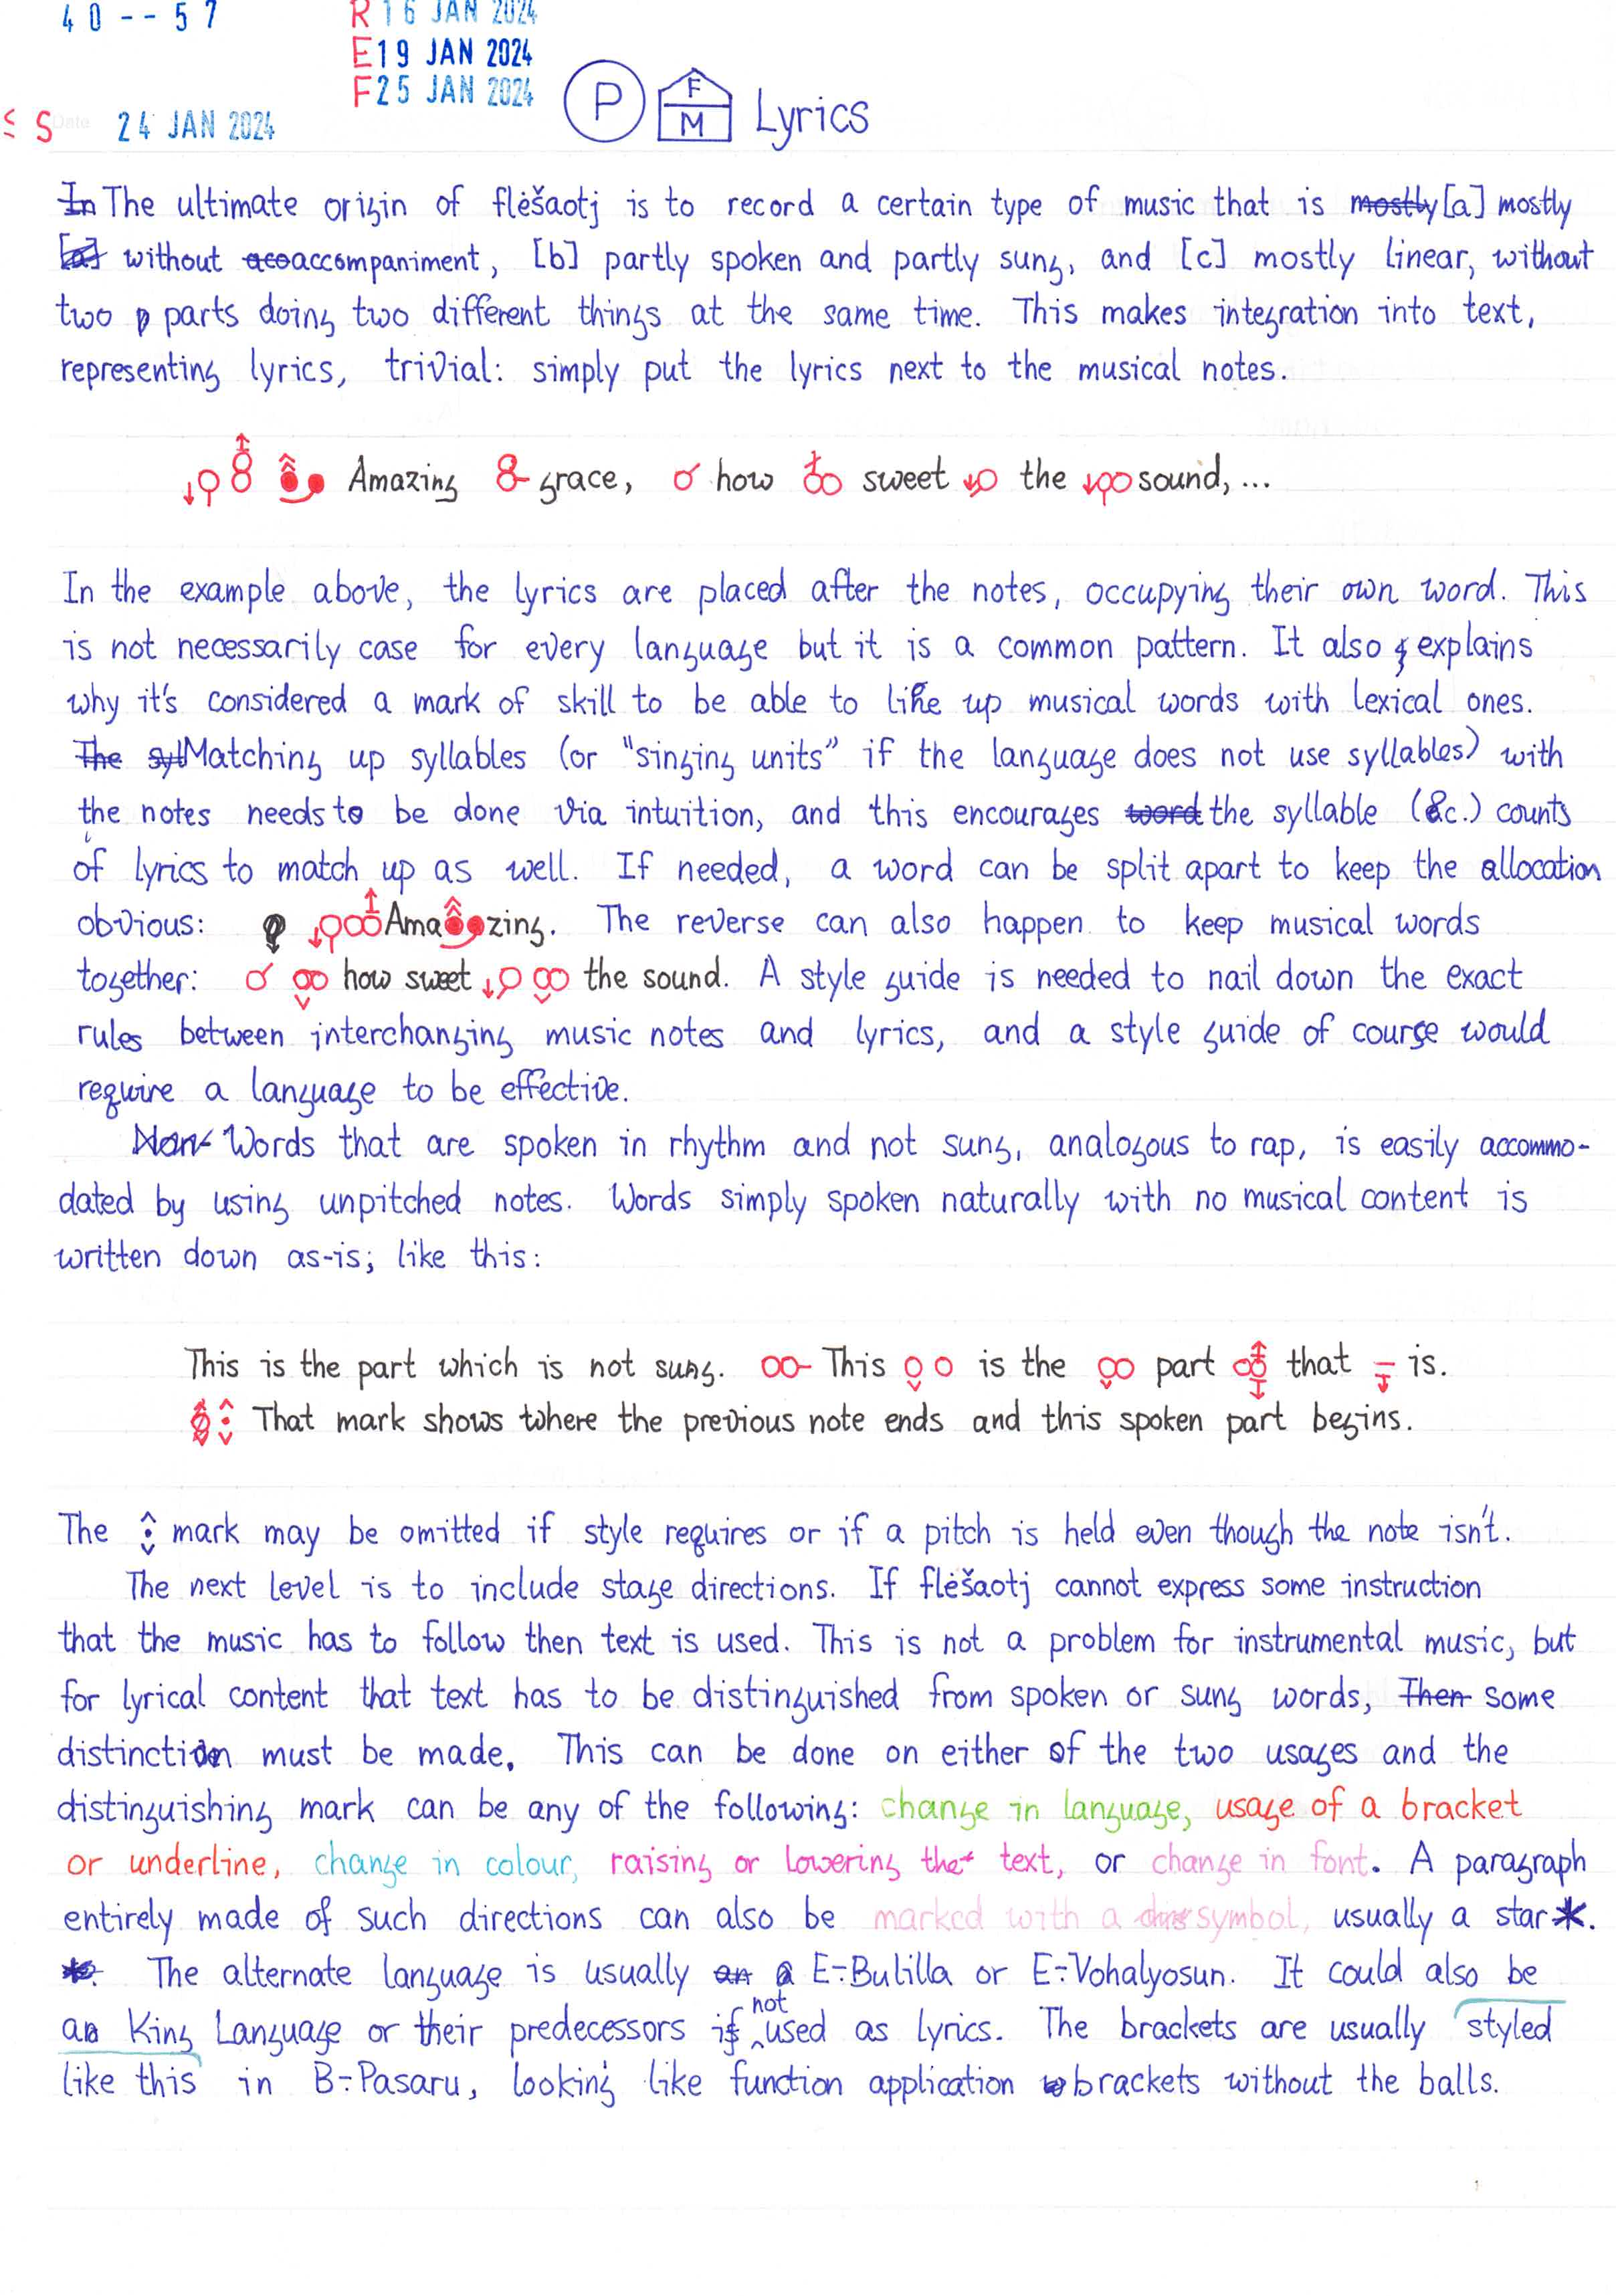 40--57
R 16 JAN 2024
E 19 JAN 2024
F 25 JAN 2024
S Date 24 JAN 2024
P F M Lyrics
In The ultimate origin of flėšaotj is to record a certain type of music that is mostly [a] mostly
[a] without aco accompaniment, [b] partly spoken and partly sung, and [c] mostly linear, without
two p parts doing two different things at the same time. This makes integration into text,
representing lyrics, trivial: simply put the lyrics next to the musical notes.
Amazing grace, how sweet the sound, ...
In the example above, the lyrics are placed after the notes, occupying their own word. This
is not necessarily case for every language but it is a common pattern. It also explains
why it's considered a mark of skill to be able to line up musical words with lexical ones.
The syl Matching up syllables (or "singing units" if the language does not use syllables) with
the notes needs to be done via intuition, and this encourages word the syllable (&c.) counts
of lyrics to match up as well. If needed, a word can be split apart to keep the allocation
obvious: Ama zing. The reverse can also happen to keep musical words
together: how sweet the sound. A style guide is needed to nail down the exact
rules between interchanging music notes and lyrics, and a style guide of course would
require a language to be effective.
Non- Words that are spoken in rhythm and not sung, analogous to rap, is easily accommo-
dated by using unpitched notes. Words simply spoken naturally with no musical content is
written down as-is; like this:
This is the part which is not sung. This is the part that is.
That mark shows where the previous note ends and this spoken part begins.
The mark may be omitted if style requires or if a pitch is held even though the note isn't.
The next level is to include stage directions. If flėšaotj cannot express some instruction
that the music has to follow then text is used. This is not a problem for instrumental music, but
for lyrical content that text has to be distinguished from spoken or sung words, Then some
distinction must be made. This can be done on either of the two usages and the
distinguishing mark can be any of the following: change in language, usage of a bracket
or underline, change in colour, raising or lowering the text, or change in font. A paragraph
entirely made of such directions can also be marked with a symbol, usually a star *.
* The alternate language is usually an a E÷Bulilla or E÷Vohalyosun. It could also be
an King Language or their predecessors if not used as lyrics. The brackets are usually styled
like this in B÷Pasaru, looking like function application brackets without the balls.